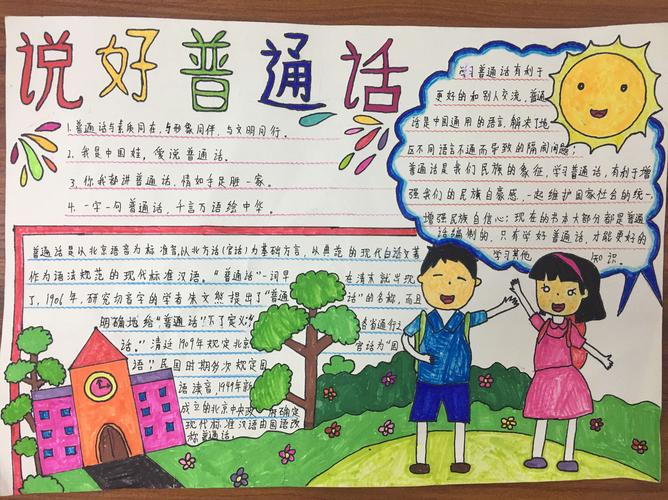 说好普通话
1.普通话与素质同在,与形象同伴,与文明同行。
2.我是中国娃,爱说普通话。
3.你我都讲普通话,情如手足胜一家。
4.一字一句普通话,千言万语绘中华。
学习普通话有利于
更好的和别人交流,普通
话是中国通用的语言,解决了地
区不同语言不通而导致的隔阂问题;
普通话是我们民族的象征,学习普通话,有利于增
强我们的民族自豪感,一起维护国家社会的统一,
增强民族自信心;现在的书本大部分都是普通
话编制的,只有学好普通话,才能更好的
学习其他 知识。
普通话是从北京语音为标准音,以北方话(官话)为基础方言,从典范的现代白话文著
作为语法规范的现代标准汉语。“普通话”一词早 在清末就出现
了,1906年,研究切音字的学者朱文熊提出了“普通 话”的名称,而且
明确地给“普通话”下了定义: 各省通行之
话。”清廷1909年规定北京 官话为“国
语”民国时期多次规定国
语读音1949年新
成立的北京中央政 府确定
现代标准汉语由国语改
称普通话。